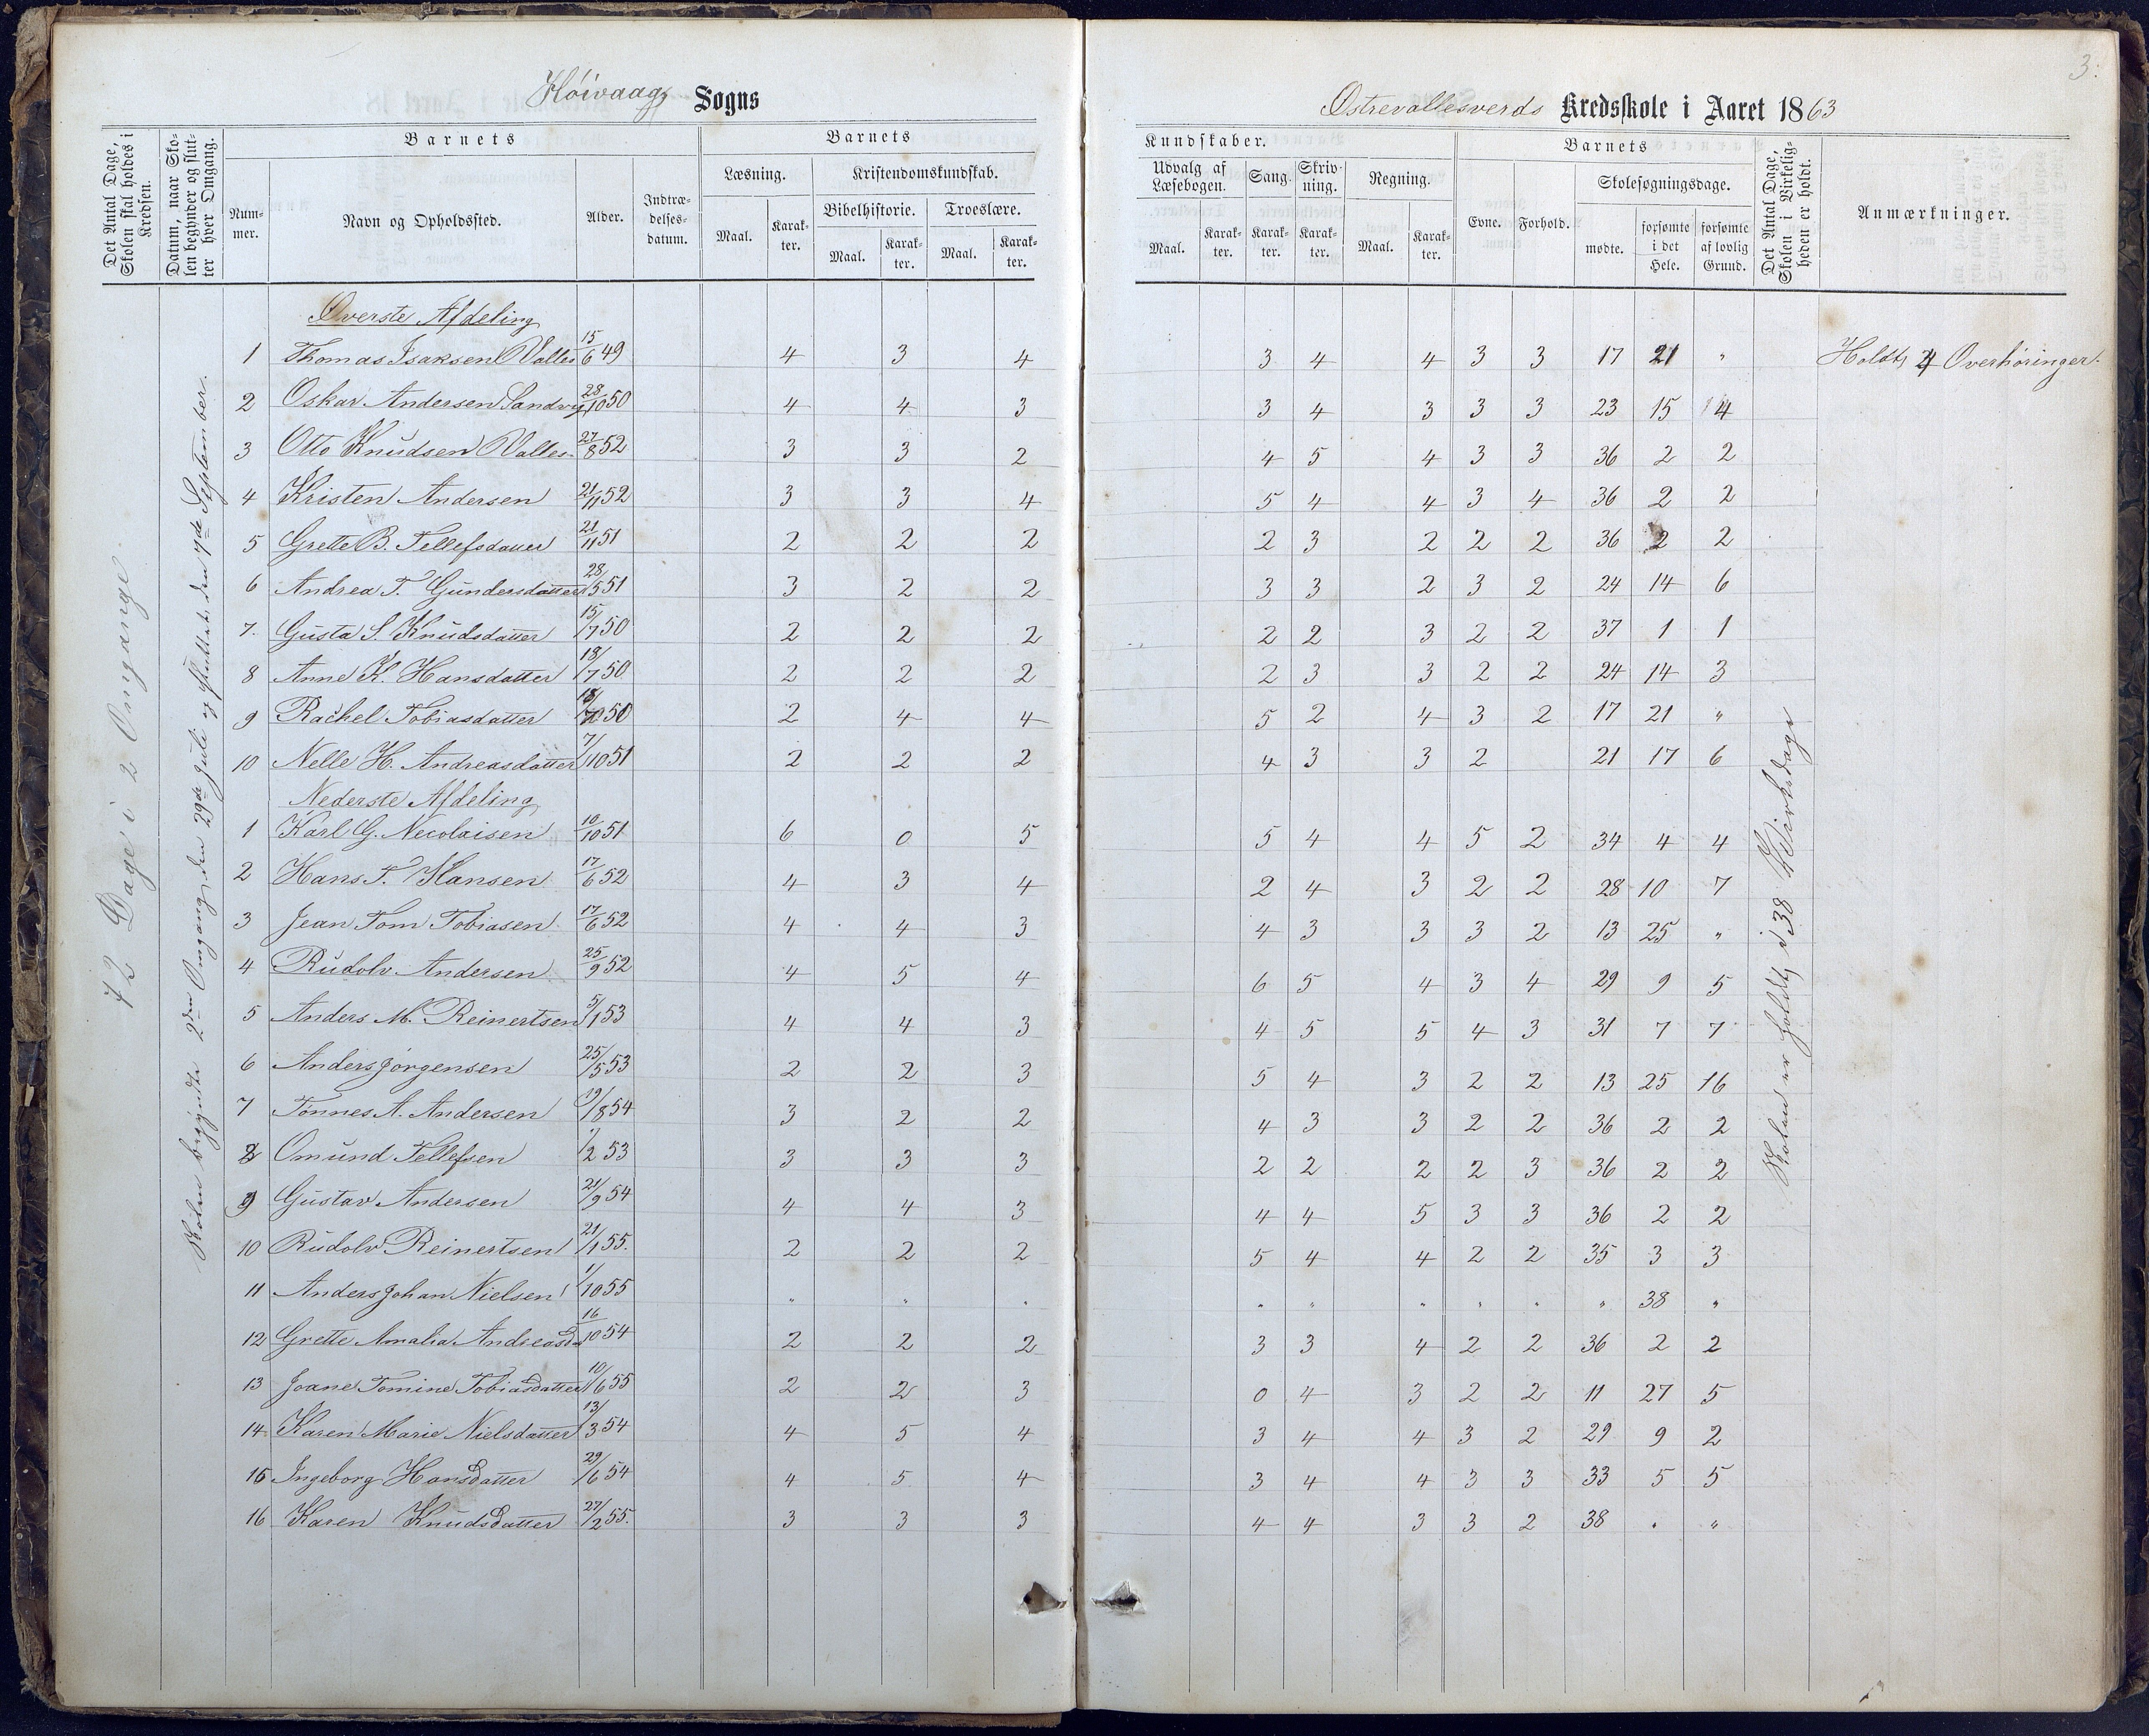 3.
Høivaags Sogns
Østrevallesverds Kredsskole i Aaret 1863
Det Antal Dage, Skolen skal holdes i Kredsen.
Datum, naar Skolen begynder og slutter hver Omgang.
Barnets
Nummer.
Navn og Opholdssted.
Alder.
Indtrædelsesdatum.
Barnets
Læsning.
Maal.
Karakter.
Kristendomskundskab.
Bibelhistorie.
Maal.
Karakter.
Troeslære.
Maal.
Karakter.
Kundskaber.
Udvalg af Læsebogen.
Maal.
Karakter.
Sang.
Karakter.
Skrivning.
Karakter.
Regning.
Maal.
Karakter.
Barnets
Evne.
Forhold.
Skolesøgningsdage.
mødte.
forsømte i det Hele.
forsømte af lovlig Grund.
Det Antal Dage, Skolen i Virkeligheden er holdt.
Anmærkninger.
72 Dage i 2 Omgange.
Skolen begyndte 2den Omgang den 29de Juli og sluttet den 7de September.
Øverste Afdeling
1 Thomas Isaksen Valles 15/6 49 4 3 4 3 4 4 3 3 17 21 " Holdt 4 Overhøringer.
2 Oskar Andersen Sandvig 28/10 50 4 4 3 3 4 3 3 3 23 15 14
3 Otto Knudsen Valles 27/8 52 3 3 2 4 5 4 3 3 36 2 2
4 Kristen Andersen 21/11 52 3 3 4 5 4 4 3 4 36 2 2
5 Grette B. Tellefsdatter 21/11 51 2 2 2 2 3 2 2 2 36 2 2
6 Andrea T. Gundersdatter 28/5 51 3 2 2 3 3 2 3 2 24 14 6
7. Gusta S. Knudsdatter 15/7 50 2 2 2 2 2 3 2 2 37 1 1
8 Anne K. Hansdatter 18/7 50 2 2 2 2 3 3 2 2 24 14 3
9 Rachel Tobiasdatter 50 2 4 4 5 2 4 3 2 17 21 "
10 Nelle H. Andreasdatter 7/10 51 2 2 2 4 3 3 2 21 17 6
Nederste Afdeling
1 Karl G. Necolaisen 10/10 51 6 0 5 5 4 4 5 2 34 4 4
2 Hans T. Hansen 17/6 52 4 3 4 2 4 3 2 2 28 10 7
3 Jean Tom Tobiasen 17/6 52 4 4 3 4 3 3 3 2 13 25 "
4 Rudolv Andersen 25/9 52 4 5 4 6 5 4 3 4 29 9 5
5 Anders M. Reinertsen 5/1 53 4 4 3 4 5 5 4 3 31 7 7
6 Anders Jørgensen 25/5 53 2 2 3 5 4 3 2 2 13 25 16
7 Tønnes A. Andersen 19/8 54 3 2 2 4 3 3 2 2 36 2 2
8 Omund Tellefsen 1/2 53 3 3 3 2 2 2 2 3 36 2 2
9 Gustav Andersen 21/9 54 4 4 3 4 4 5 3 3 36 2 2
10 Rudolv Reinertsen 21/1 55. 2 2 2 5 4 4 2 2 35 3 3
11 Anders Johan Nielsen 1/10 55 " " " " " " " " " 38 "
12 Grette Amalia Andreasd 16/10 54 2 2 2 3 3 4 2 2 36 2 2
13 Joane Tomine Tobiasdatter 10/6 55 2 2 3 0 4 3 2 2 11 27 5
14 Karen Marie Nielsdatter 13/3 54 4 5 4 3 4 4 3 2 29 9 2
15 Ingeborg Hansdatter 29/6 54 4 5 4 3 4 4 3 3 33 5 5
16 Karen Knudsdatter 27/2 55. 3 3 3 4 4 3 3 2 38 . "
Skolen er holdt i 38 Virkedage